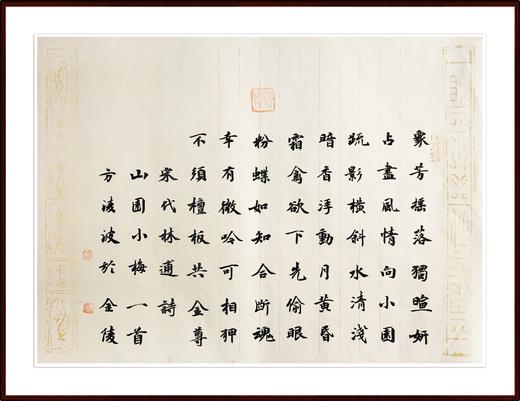 衆芳摇落獨暄妍
占盡風情向小園
疏影横斜水清淺
暗香浮動月黄昏
霜禽欲下先偷眼
粉蝶如知合断魂
幸有微吟可相狎
不須檀板共金尊
宋代林逋詩
山園小梅一首
方淩波於金陵